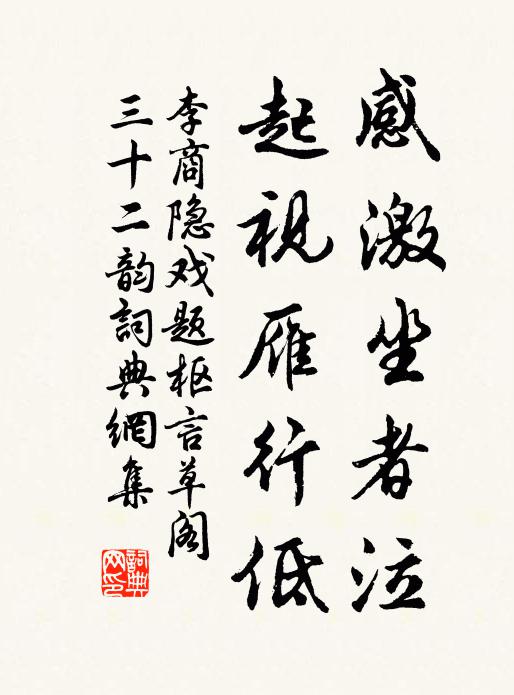 感激坐者泣
起視雁行低
李商隐戏题枢言草阁
三十二韵詞典網集
詞典
网印